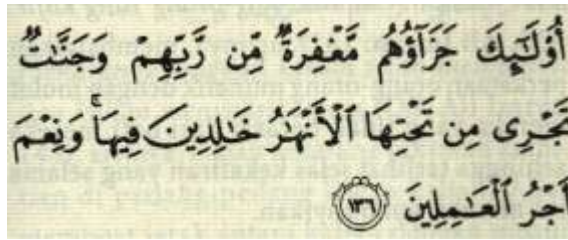 أُوْلَٰٓئِكَ جَزَآؤُهُم مَّغْفِرَةٌ مِّن رَّبِّهِمْ وَجَنَّٰتٌ
تَجْرِى مِن تَحْتِهَا ٱلْأَنْهَٰرُ خَٰلِدِينَ فِيهَا ۚ وَنِعْمَ
أَجْرُ ٱلْعَٰمِلِينَ ١٣٦